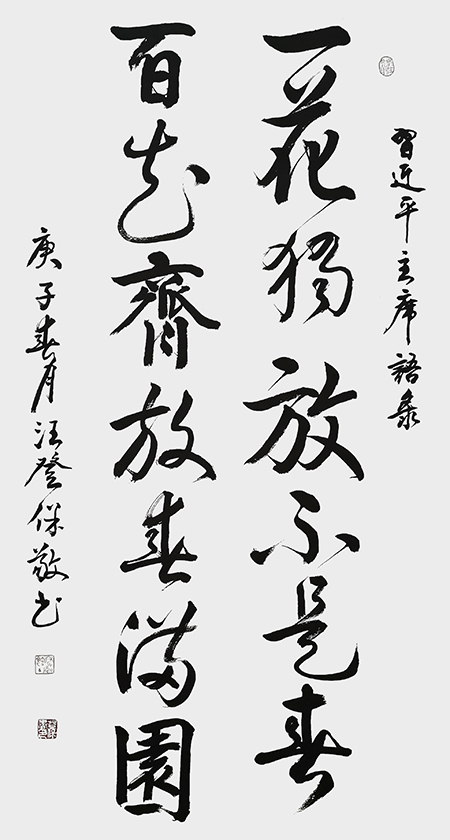 習近平主席語彙
一花獨放不是春
百花齊放春滿園
庚子春月汪登保敬书